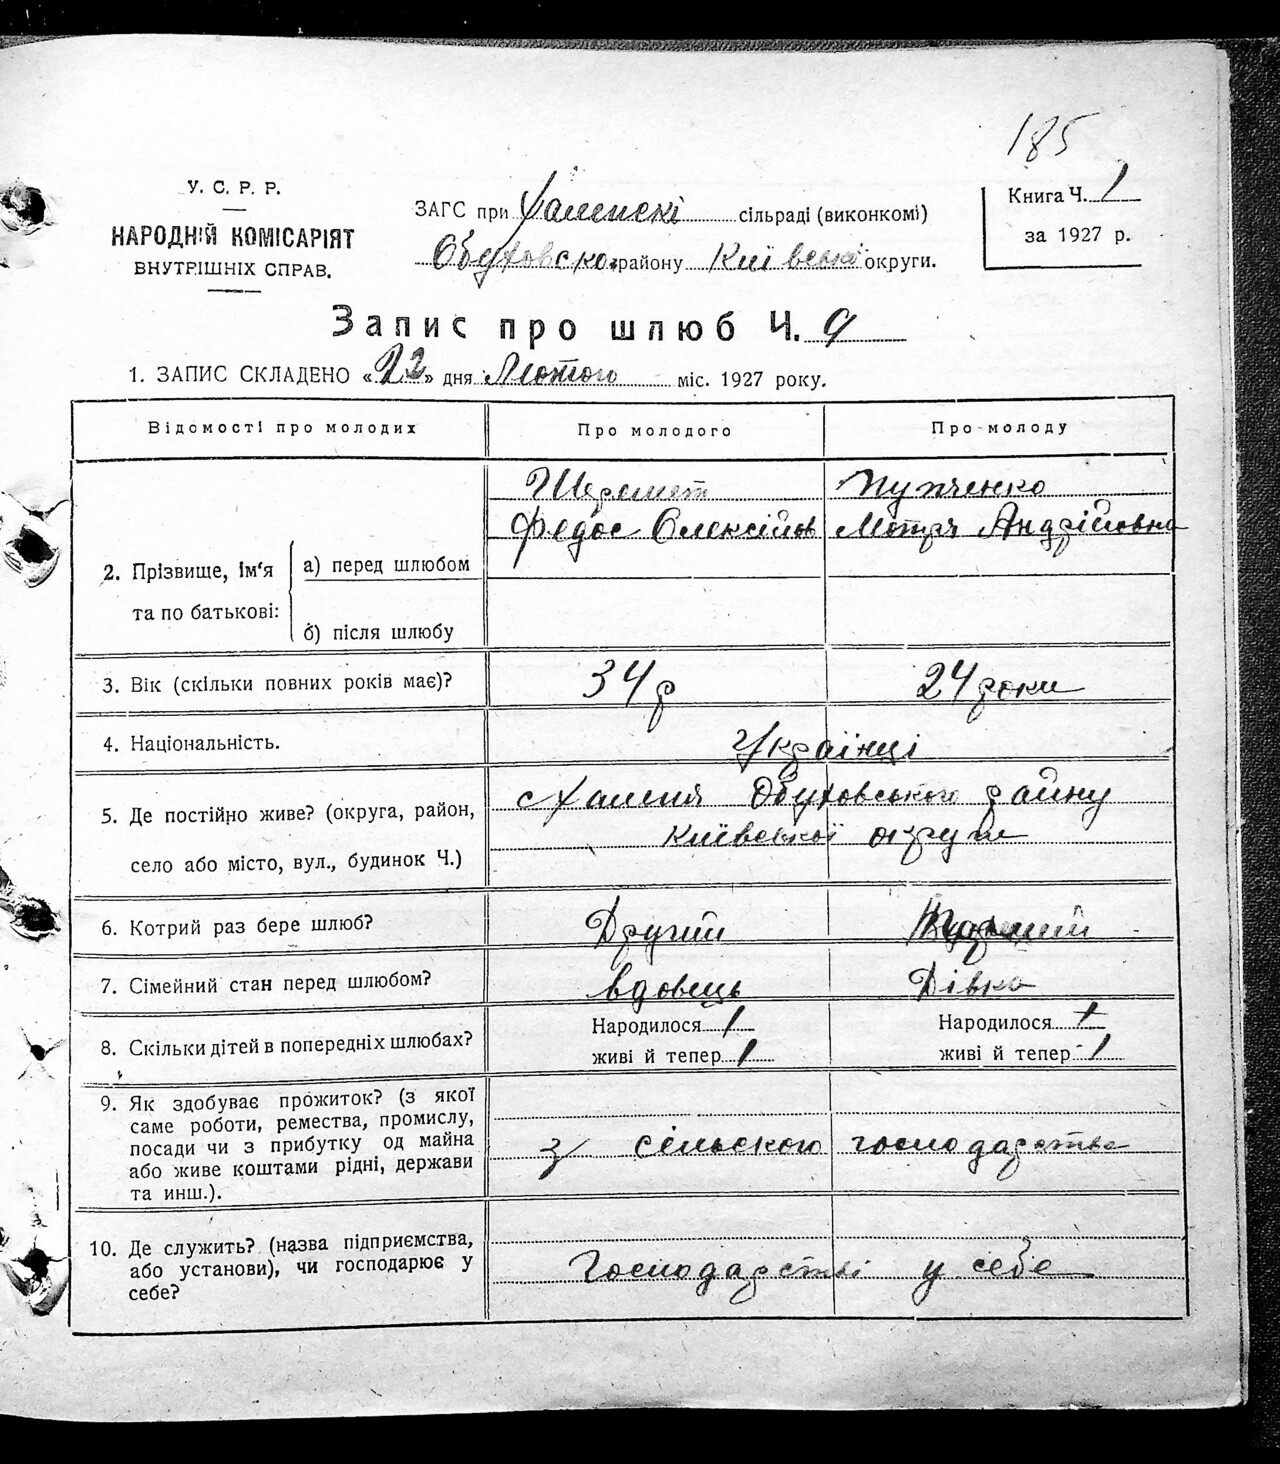 185
У. С. Р. Р.
НАРОДНІЙ КОМІСАРІЯТ
ВНУТРІШНІХ СПРАВ.
ЗАГС при Халепскі сільраді (виконкомі)
Обуховско району Київські округи.
Книга Ч. 1
за 1927 р.
Запис про шлюб Ч. 9
1. ЗАПИС СКЛАДЕНО «22» дня Лютого міс. 1927 року.
Відомості про молодих Про молодого Про молоду
Шеремет Пупченко
Федос Олексійов Мотря Андріївна
2. Прізвище, ім'я та по батькові:
а) перед шлюбом
б) після шлюбу
3. Вік (скільки повних років має)? 34 р 24 роки
4. Національність. Українці
5. Де постійно живе? (округа, район, село або місто, вул., будинок Ч.)
с Халепя Обуховського району
Київської округи
6. Котрий раз бере шлюб? Другий
7. Сімейний стан перед шлюбом? вдовець Дівка
8. Скільки дітей в попередніх шлюбах?
Народилося 1 Народилося 1
живі й тепер 1 живі й тепер 1
9. Як здобуває прожиток? (з якої
саме роботи, ремества, промислу,
посади чи з прибутку од майна
або живе коштами рідні, держави
та инш.).
з сільского господарства
10. Де служить? (назва підприємства,
або установи), чи господарює у
себе?
Господарстві у себе